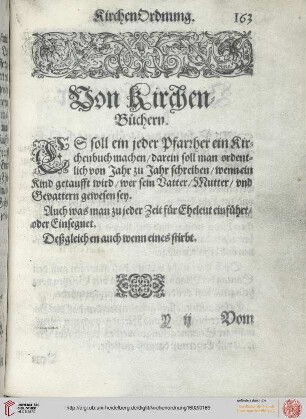 KirchenOrdnung. 163
Von Kirchen/
Büchern.
ES soll ein jeder Pfarrher ein Kir-
chenbuch machen/ darein soll man ordent-
lich von Jahr zu Jahr schreiben/ wenn ein
Kind getaufft wird/ wer sein Vatter/ Mutter/ vnd
Gevattern gewesen sey.
Auch was man zu jeder Zeit für Eheleut einführt/
oder Einsegnet.
Deßgleichen auch wenn eines stirbt.
Y ij Vom
UNIVERSITÄTS-
BIBLIOTHEK
HEIDELBERG